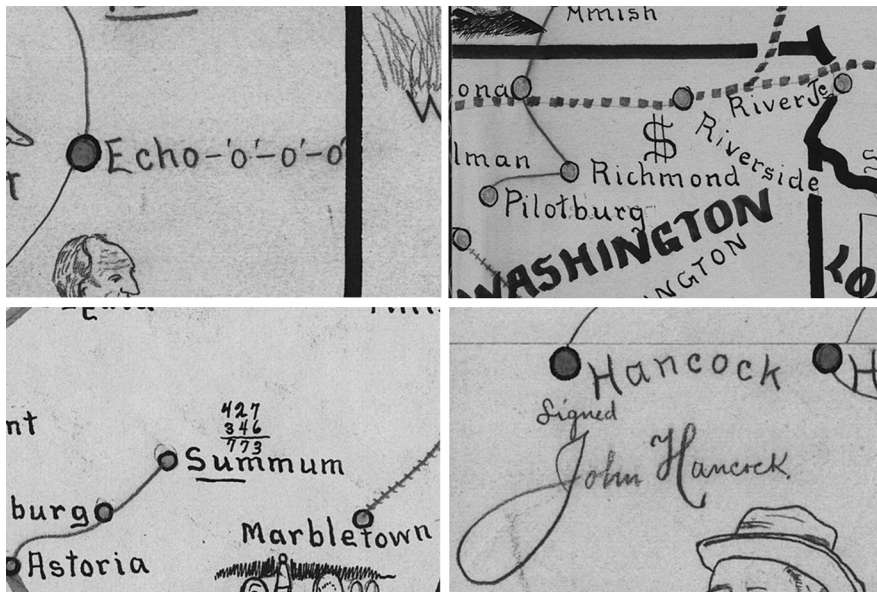 Echo-'o'-o'-o'
Mmish
ona
River Jc
$
Riverside
lman
Richmond
Pilotburg
WASHINGTON
NGTON
nt
427
346
773
Summum
burg
Marbletown
Astoria
Hancock
H
Signed
John Hancock